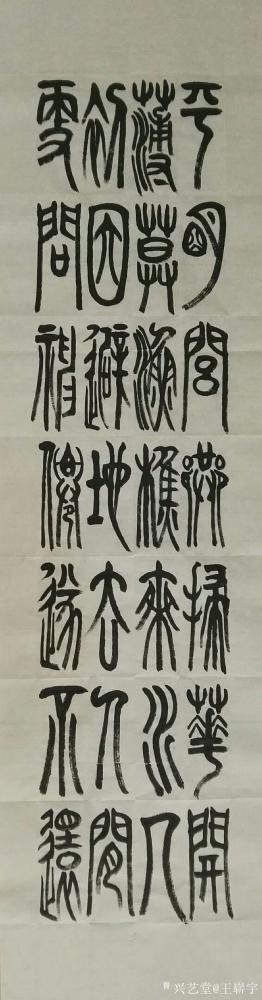 平明閭巷掃華開
薄莫漁樵乘水入
初因避地去人間
更問神僊遂不還
兴艺堂@王嶄字